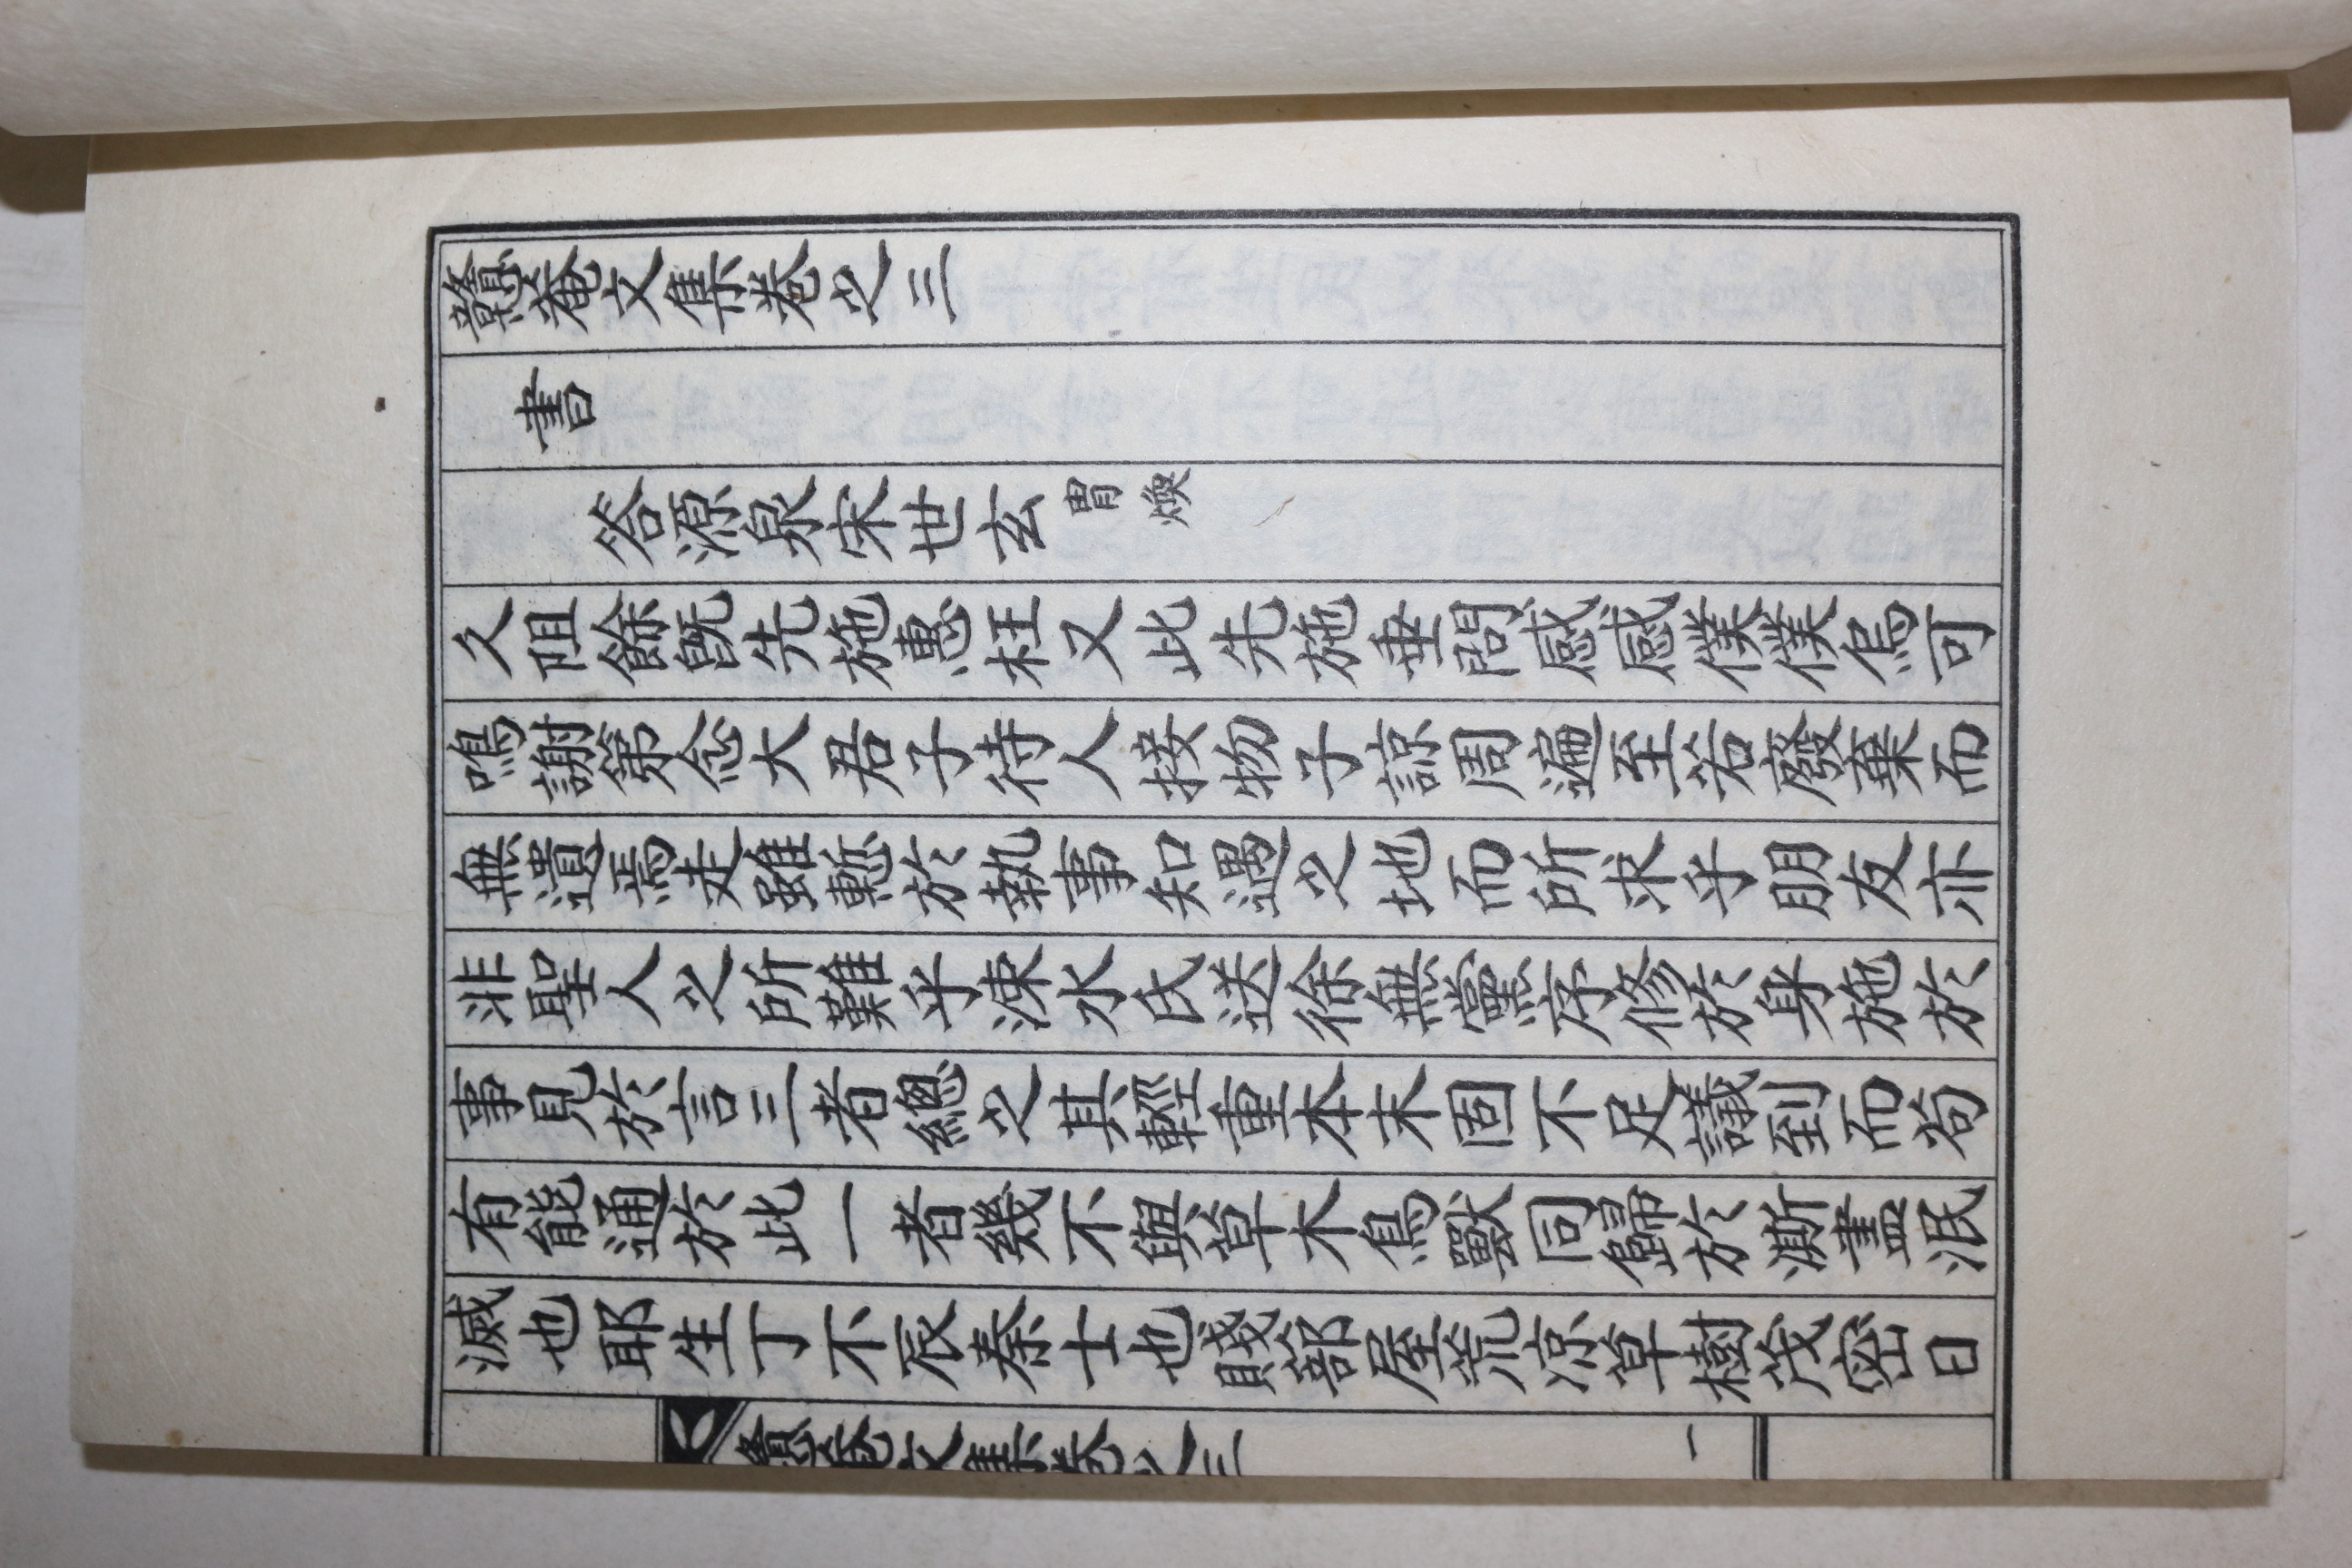 戇菴文集卷之三
書
答源泉宋世玄胄煥
久阻餘旣先施惠枉又此先施垂問感感僕僕焉可
鳴謝第念大君子待人接物子諒周遍至若廢棄而
無遺焉走雖慙於執事知遇之地而所求乎朋友亦
非聖人之所難乎涑水氏送徐無黨序修於身施於
事見於言三者總之其輕重本末固不足議到而苟
有能通於此一者幾不與草木鳥獸同歸於澌盡泯
滅也耶生丁不辰秦士也賤蔀屋荒凉草樹茂密日
戇菴文集卷之三 一